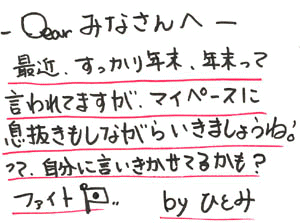 - Dear みなさんへ -
最近、すっかり年末、年末って
言われてますが、マイペースに
息抜きもしながらいきましょうね!
って、自分に言いきかせてるかも?
ファイト .. by ひとみ